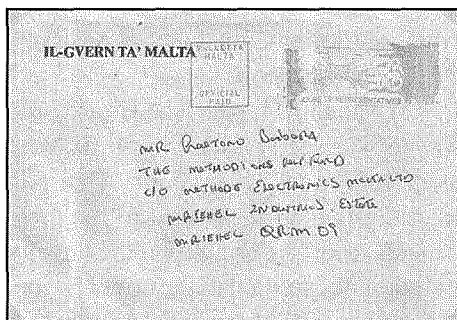 IL-GVERN TA' MALTA
VALLETTA
MALTA
OFFICIAL
PAID
HOUSE OF REPRESENTATIVES
MR
THE METHODIANS FUND
C/O METHODE ELECTRONICS MALTA LTD
MRIEHEL INDUSTRIAL ESTATE
MRIEHEL QRM 09